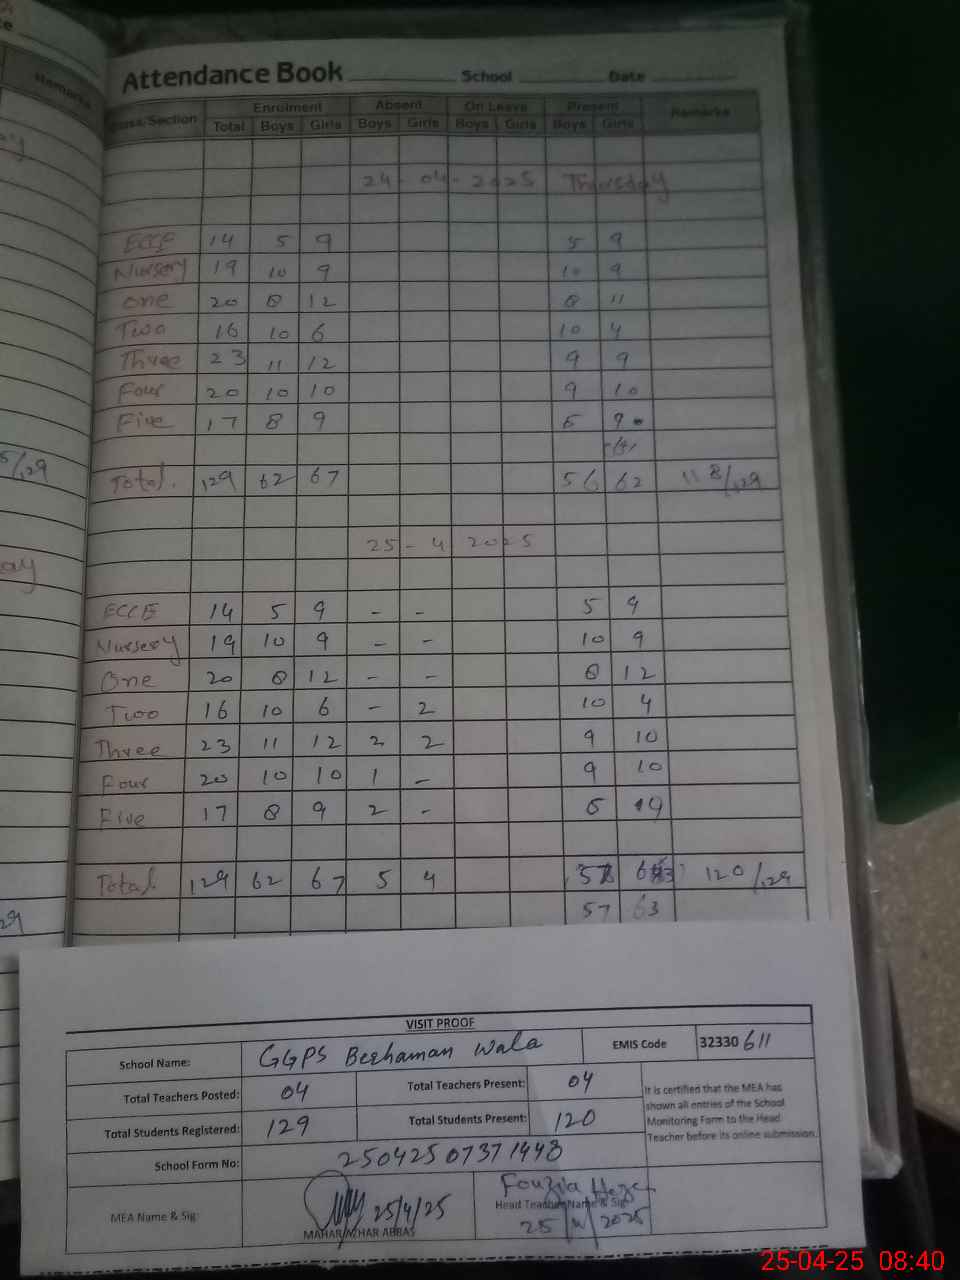 Remarks
Attendance Book School Date
Class/Section Enrolment Absent On Leave Present Remarks
Total Boys Girls Boys Girls Boys Girls Boys Girls
24-04-2025 Thursday
ECCE 14 5 9 5 9
Nursery 19 10 9 10 9
One 20 8 12 8 11
Two 16 10 6 10 4
Three 23 11 12 9 9
Four 20 10 10 9 10
Five 17 8 9 6 9
Total. 129 62 67 56 62 118/129
25-4 2025
ECCE 14 5 9 - - 5 9
Nursery 19 10 9 - - 10 9
One 20 8 12 - - 8 12
Two 16 10 6 - 2 10 4
Three 23 11 12 2 2 9 10
Four 20 10 10 1 - 9 10
Five 17 8 9 2 - 6 9
Total. 129 62 67 5 4 57 63 120/129
57 63
VISIT PROOF
School Name: GGPS Beehaman Wala EMIS Code 32330611
Total Teachers Posted: 04 Total Teachers Present: 04
Total Students Registered: 129 Total Students Present: 120
It is certified that the MEA has
shown all entries of the School
Monitoring Form to the Head
Teacher before its online submission.
School Form No: 25042507371448
MEA Name & Sig: 25/4/25
MAHAR AZHAR ABBAS
Fouzia
Head Teacher Name & Sig
25/4/2025
25-04-25 08:40